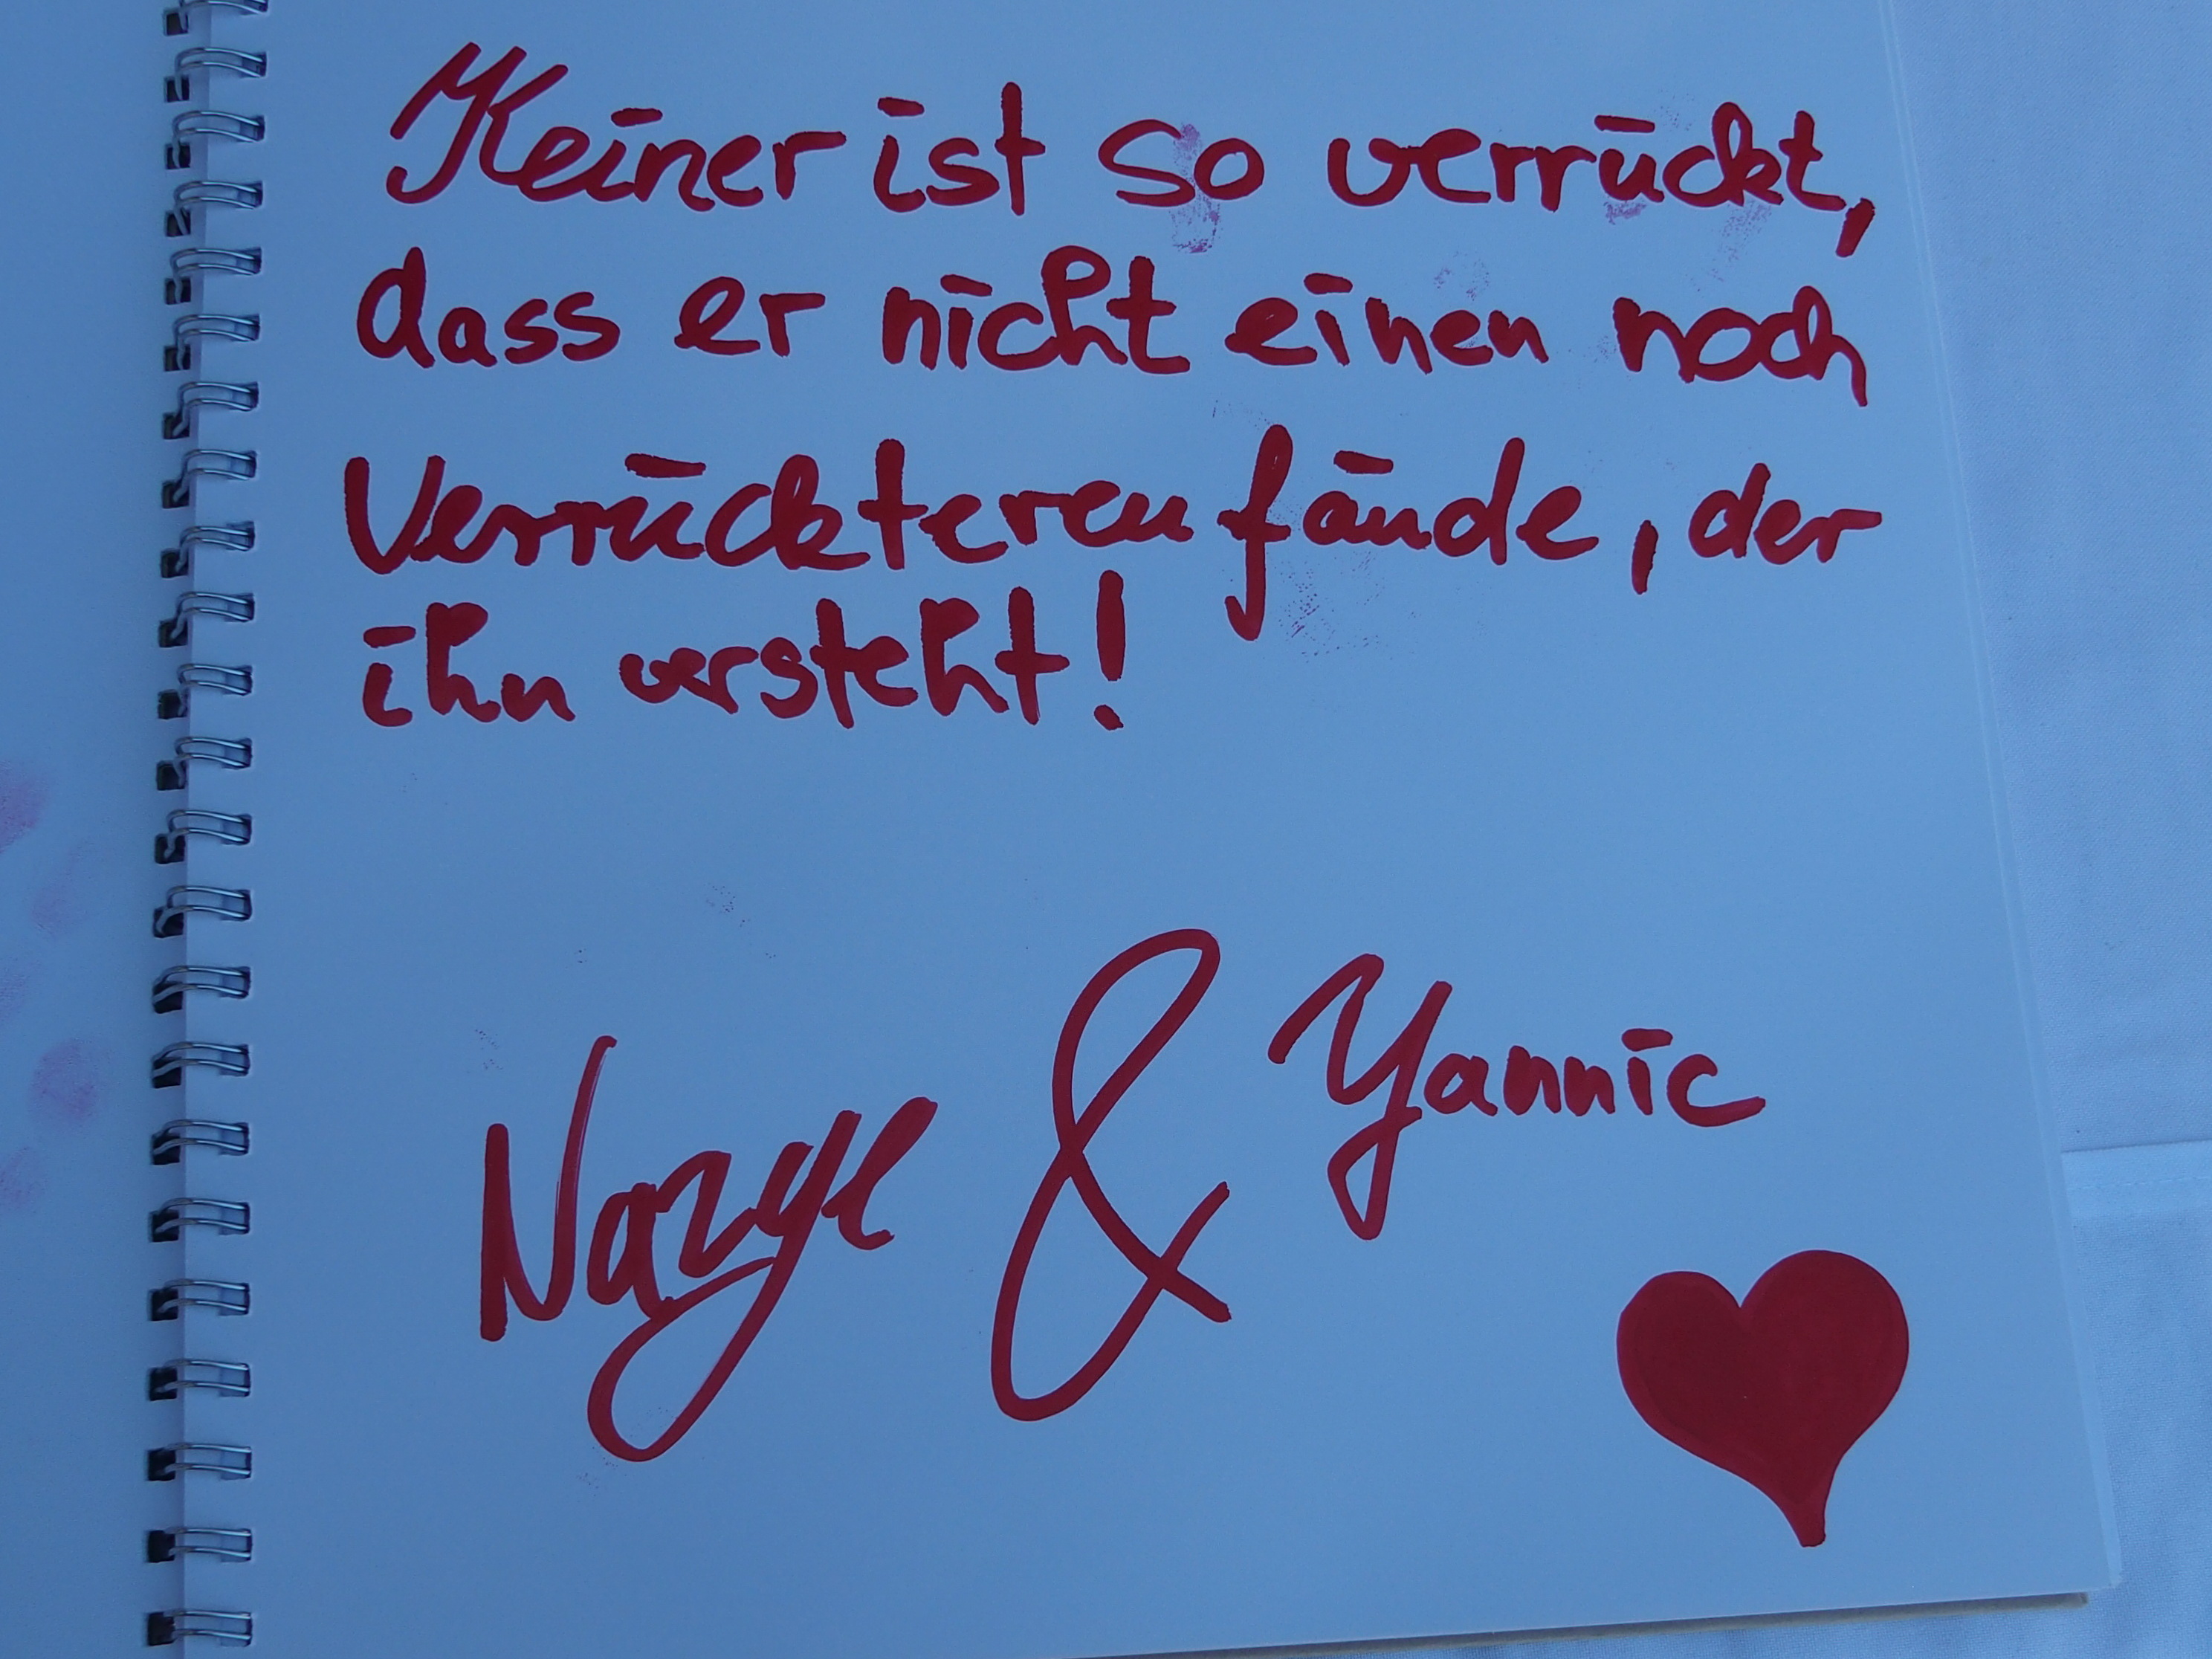 Keiner ist so verrückt,
dass er nicht einen noch
Verrückteren fände, der
ihn versteht!
& Yannic